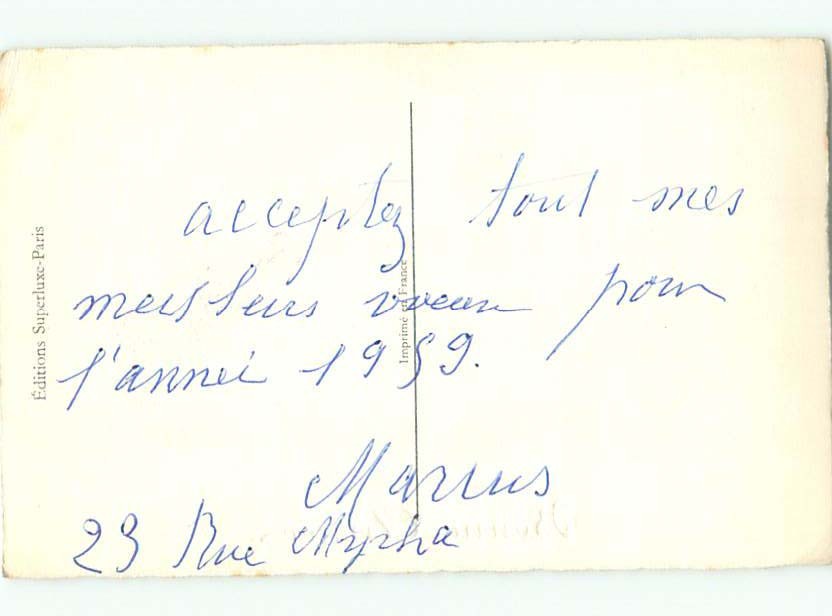 acceptez tout mes
meilleurs voeux pour
l'année 1959.
Marius
23 Rue Myrha
Éditions Superluxe-Paris
Imprimé en France